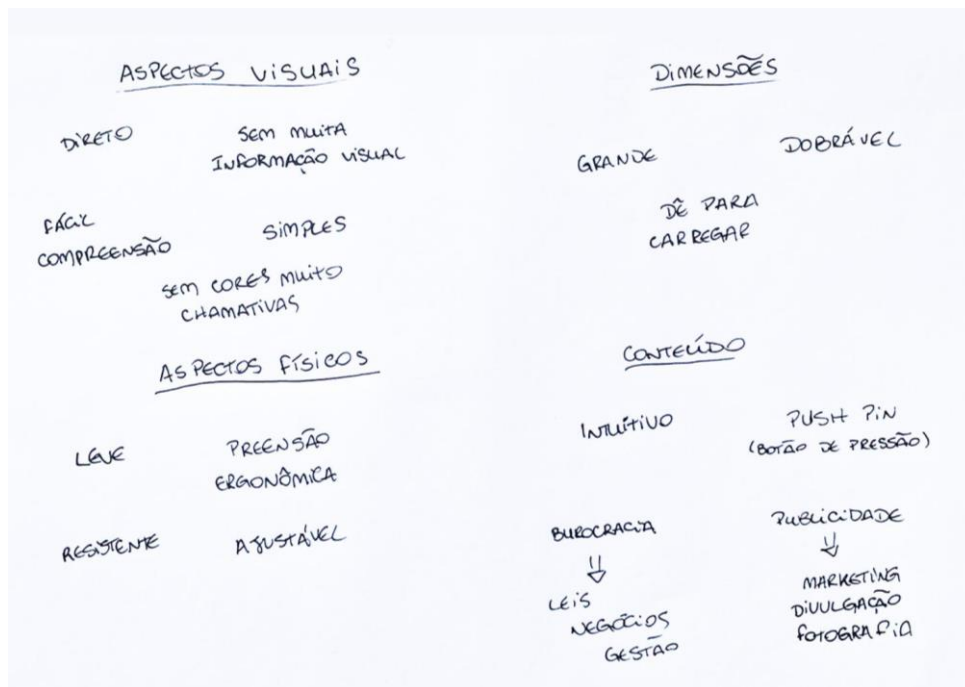 ASPECTOS VISUAIS
DIRETO
SEM MUITA
INFORMAÇÃO VISUAL
FÁCIL
COMPREENSÃO
SIMPLES
SEM CORES MUITO
CHAMATIVAS
ASPECTOS FÍSICOS
LEVE
PREENSÃO
ERGONÔMICA
RESISTENTE
AJUSTÁVEL
DIMENSÕES
GRANDE
DOBRÁVEL
DÊ PARA
CARREGAR
CONTEÚDO
INTUITIVO
PUSH PIN
(BOTÃO DE PRESSÃO)
BUROCRACIA
⇓
LEIS
NEGÓCIOS
GESTÃO
PUBLICIDADE
⇓
MARKETING
DIVULGAÇÃO
FOTOGRAFIA